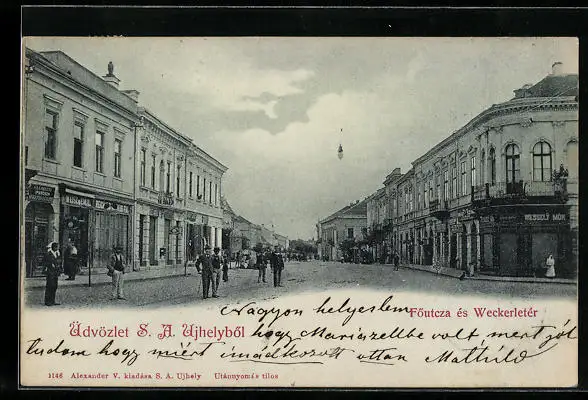 WEISZ EMIL
WESSELY MÓR
Nagyon helyeslem
Főutcza és Weckerletér
Üdvözlet S. A. Ujhelyből
hogy Mariazellbe volt mert jól
tudom hogy miért imádkozott ottan Mathild
1146 Alexander V. kiadása S. A. Ujhely Utánnyomás tilos